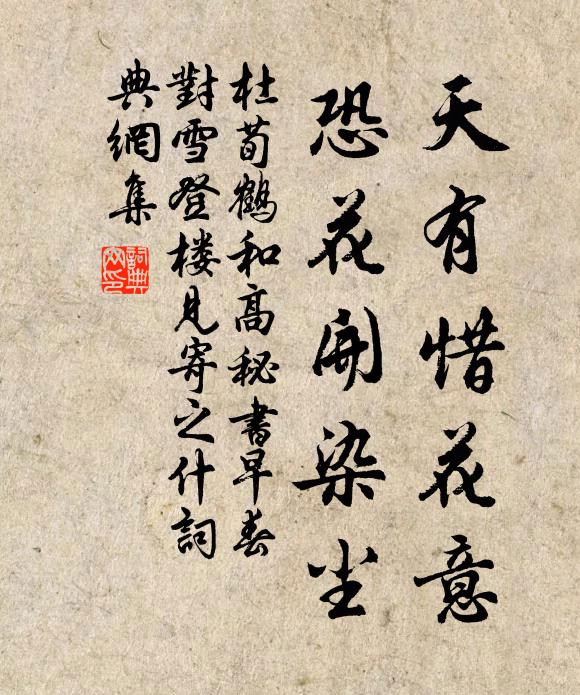 天有惜花意
恐花開染尘
杜荀鶴和高秘書早春
對雪登楼見寄之什詞
典網集
詞典
网印